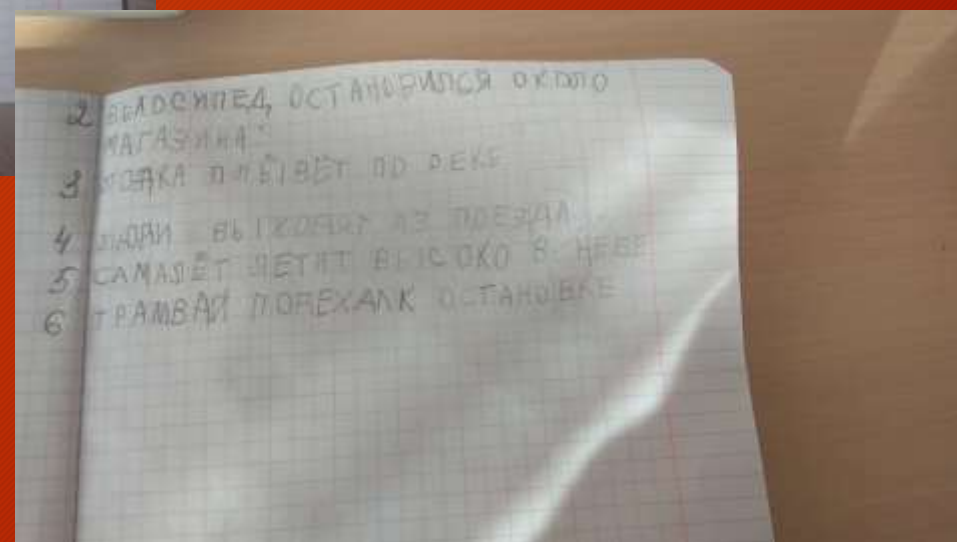 2 ВЕЛОСИПЕД ОСТАНОВИЛСЯ ОКОЛО
МАГАЗИНА.
3 ЛОДКА ПЛЫВЁТ ПО РЕКЕ
4 ЛЮДИ ВЫХОДЯТ ИЗ ПОЕЗДА.
5 САМАЛЁТ ЛЕТИТ ВЫСОКО В НЕБЕ
6 ТРАМВАЙ ПОДЕХАЛК ОСТАНОВКЕ